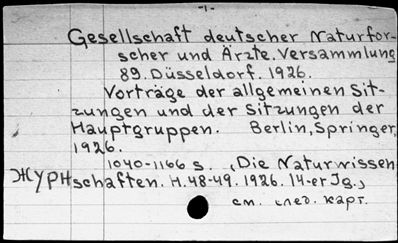 -1-
Gesellschaft deutscher Naturfor-
scher und Ärzte. Versammlung
89. Düsseldorf. 1926.
Vorträge der allgemeinen Sit-
zungen und der Sitzungen der
Hauptgruppen. Berlin, Springer,
1926.
1040-1166 s. „Die Naturwissen
Журн schaften. H. 48-49. 1926. 14-er Jg.„
см. след. карт.